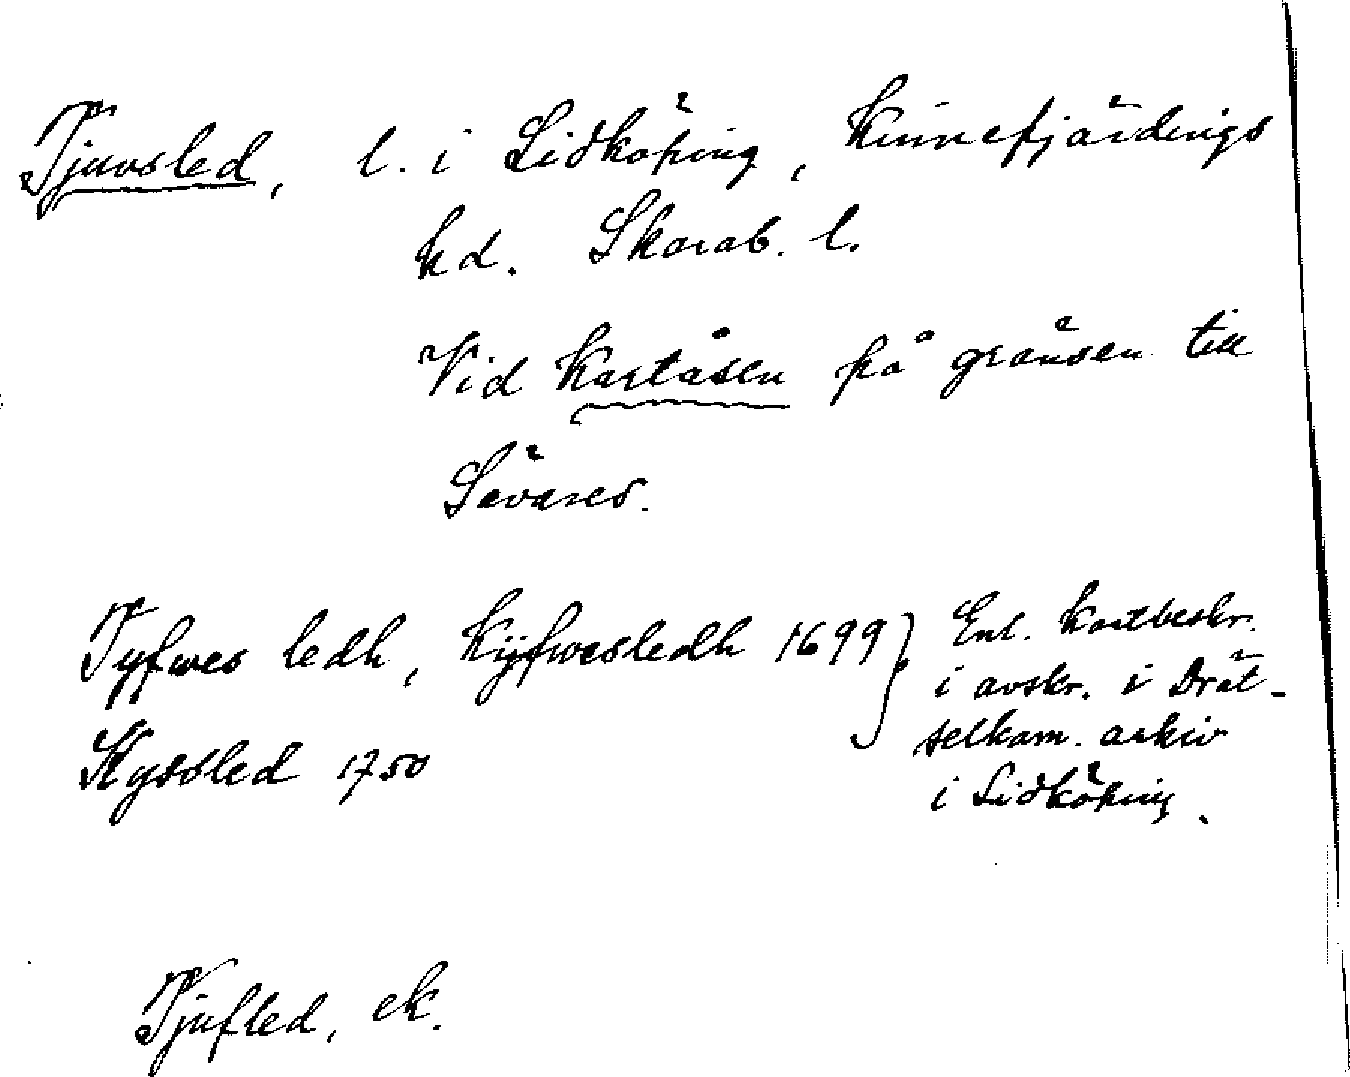 Tjuvsled, l. i Lidköping, Kinnefjärdings
hd. Skarab. l.
Vid Kartåsen på gränsen till
Sävare s.
Tyfwes ledh, Kÿfwesledh 1699
Kysled 1750
Enl. kartbeskr.
i avskr. i Drät-
selkam. arkiv
i Lidköping.
Tjufled, ek.